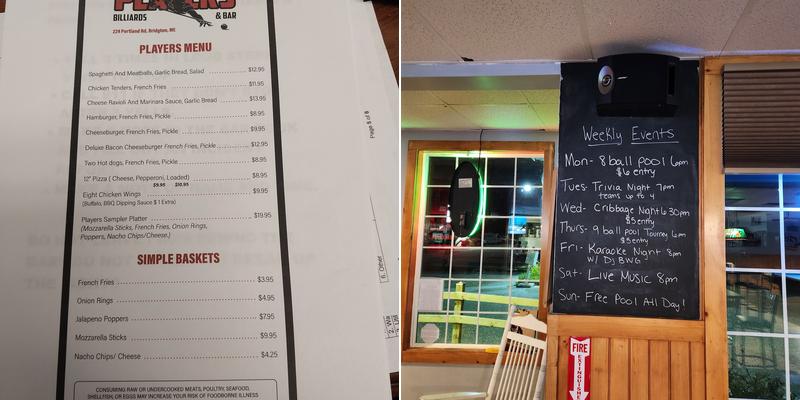 PLAYERS
BILLIARDS & BAR
224 Portland Rd, Bridgton, ME
PLAYERS MENU
Spaghetti And Meatballs, Garlic Bread, Salad $12.95
Chicken Tenders, French Fries $11.95
Cheese Ravioli And Marinara Sauce, Garlic Bread $13.95
Hamburger, French Fries, Pickle $8.95
Cheeseburger, French Fries, Pickle $9.95
Deluxe Bacon Cheeseburger French Fries, Pickle $12.95
Two Hot dogs, French Fries, Pickle $8.95
12" Pizza ( Cheese, Pepperoni, Loaded) $8.95
$9.95 $10.95
Eight Chicken Wings $9.95
(Buffalo, BBQ Dipping Sauce $1 Extra)
Players Sampler Platter $19.95
(Mozzarella Sticks, French Fries, Onion Rings,
Poppers, Nacho Chips/Cheese.)
SIMPLE BASKETS
French Fries $3.95
Onion Rings $4.95
Jalapeno Poppers $7.95
Mozzarella Sticks $9.95
Nacho Chips/ Cheese $4.25
CONSUMING RAW OR UNDERCOOKED MEATS, POULTRY, SEAFOOD,
SHELLFISH, OR EGGS MAY INCREASE YOUR RISK OF FOODBORNE ILLNESS
Page 5 of 8
6. Other
Weekly Events
Mon- 8 ball pool 6pm
$6 entry
Tues- Trivia Night 7pm
teams up to 4
Wed- Cribbage Night 6:30pm
$5 entry
Thurs- 9 ball pool Tourney 6pm
$5 entry
Fri- Karaoke Night 8pm
w/ Dj BWG
Sat- Live Music 8pm
Sun- Free Pool All Day!
FIRE
EXTINGUISHER